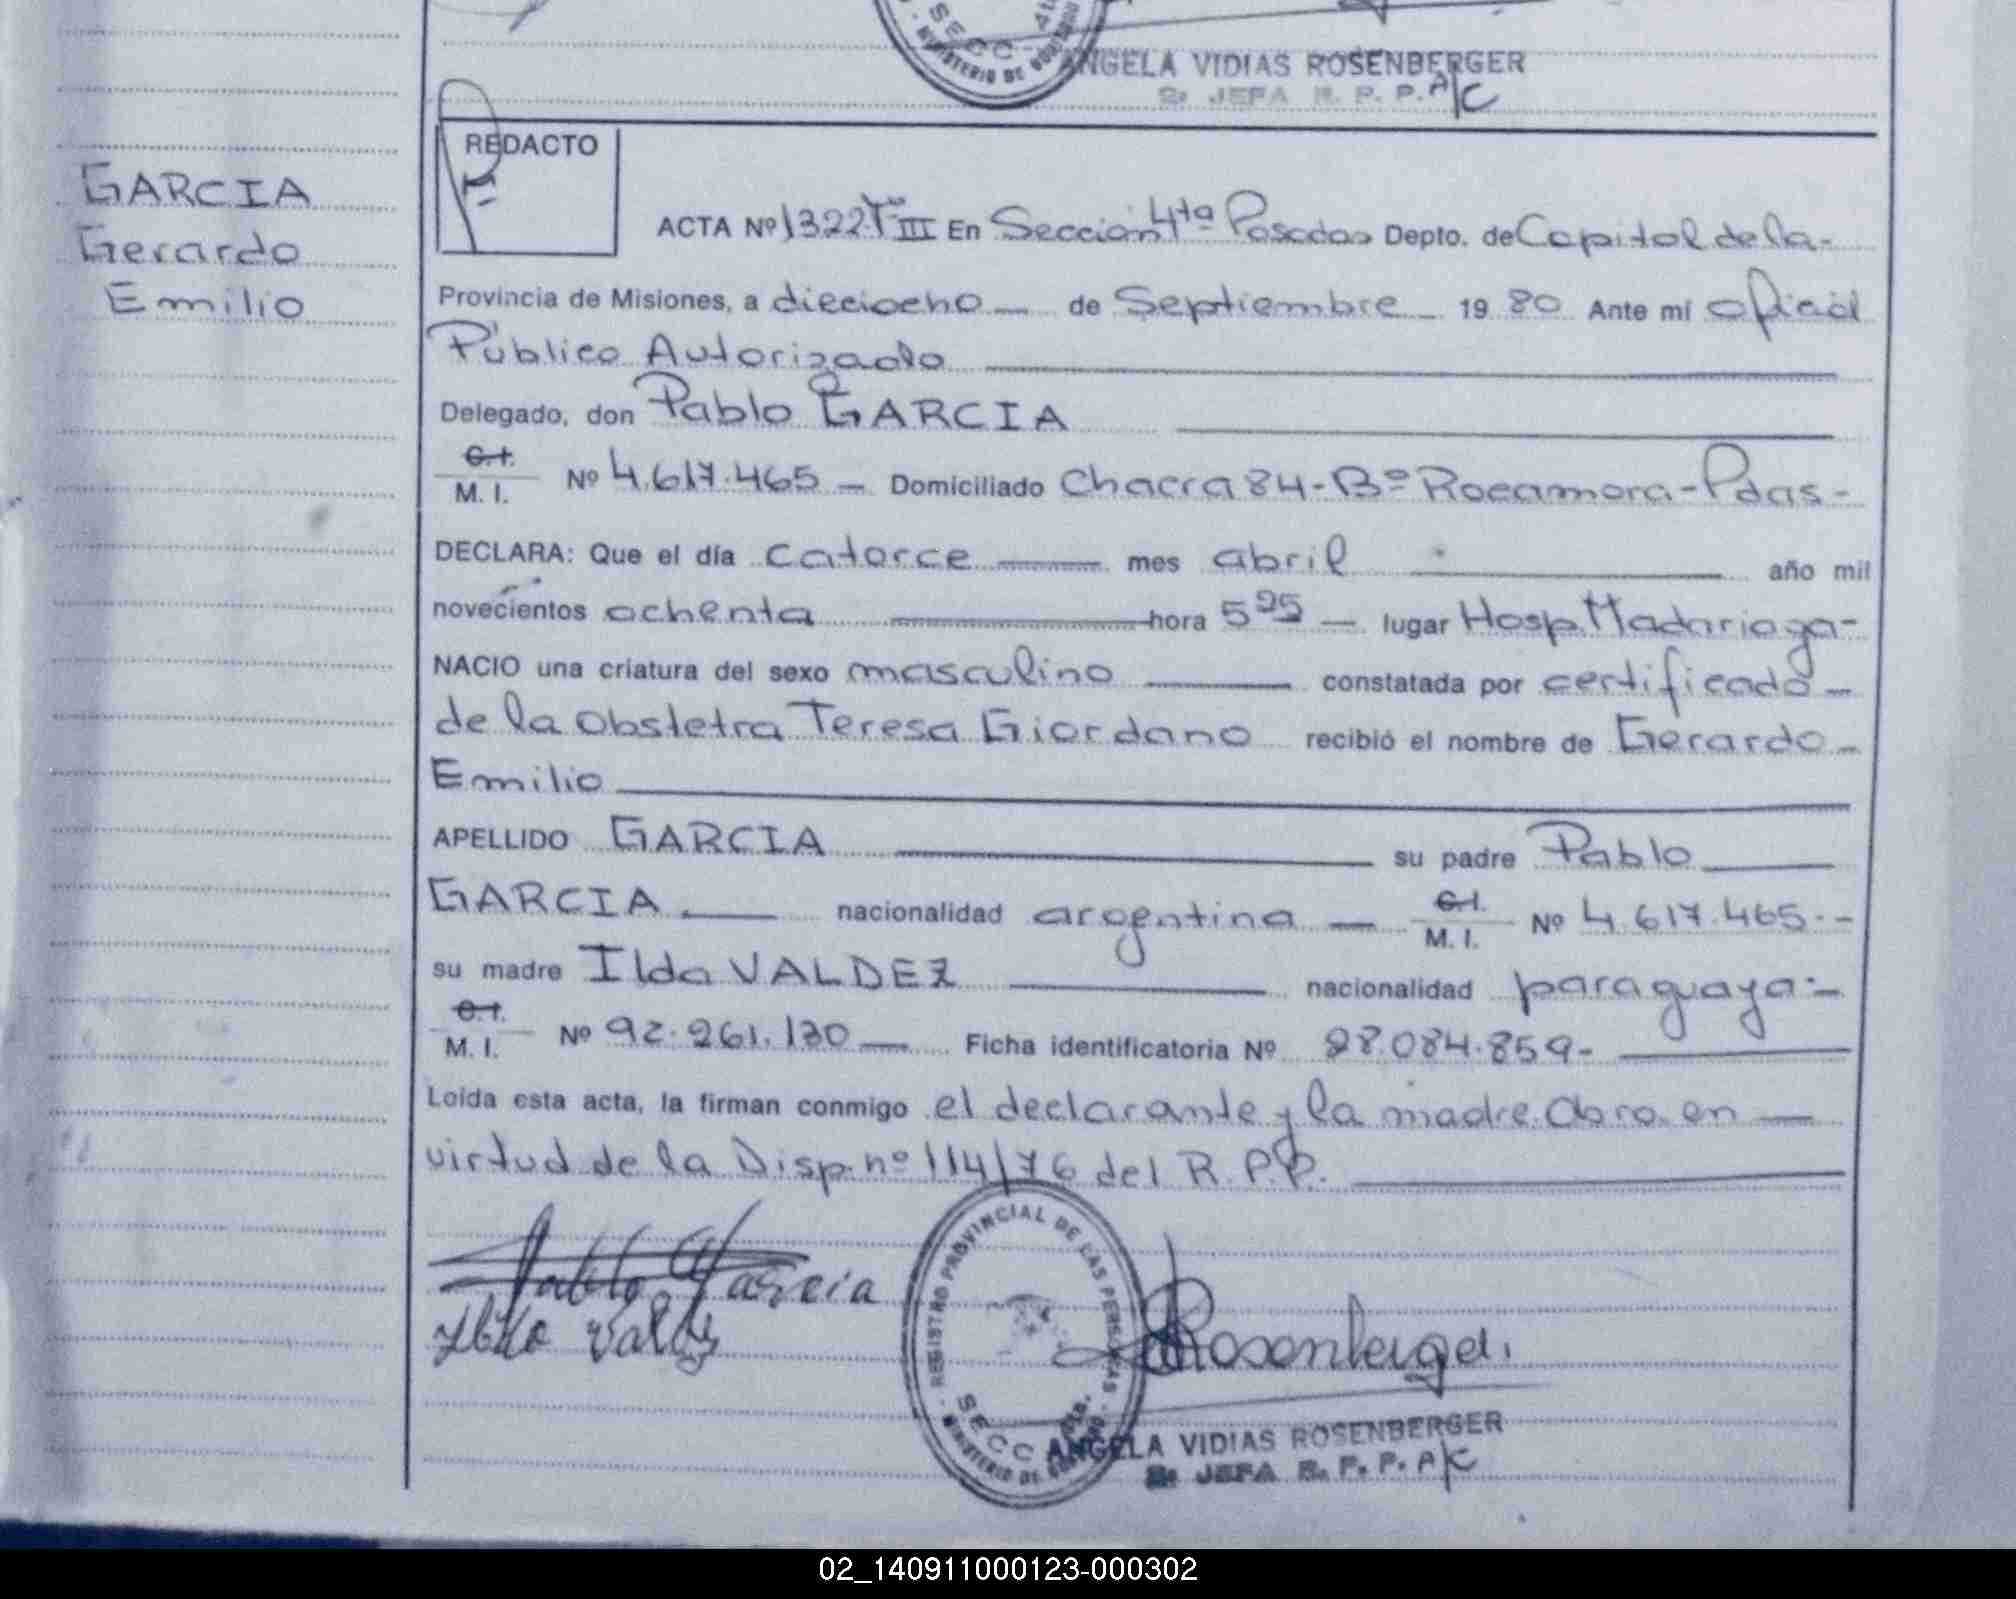 SECC 4ta
MINISTERIO DE
ANGELA VIDIAS ROSENBERGER
2: JEFA R. P. P. A/C
REDACTO
GARCIA
Gerardo
Emilio
ACTA Nº 1322 Tº III En Sección 4ta Posadas Depto. de Capital de la-
Provincia de Misiones, a dieciocho de Septiembre 19 80 Ante mí Oficial
Público Autorizado
Delegado, don Pablo GARCIA
C.I. M. I. Nº 4.617.465 - Domiciliado Chacra 84-Bº Rocamora-Pdas-
DECLARA: Que el día catorce mes abril año mil
novecientos ochenta hora 5 25 - lugar Hosp. Madariaga-
NACIO una criatura del sexo masculino constatada por certificado-
de la Obstetra Teresa Giordano recibió el nombre de Gerardo-
Emilio
APELLIDO GARCIA su padre Pablo
GARCIA nacionalidad argentina - C.I. M. I. Nº 4.617.465.-
su madre Ilda VALDEZ nacionalidad paraguaya.-
C.I. M. I. Nº 92.261.130 - Ficha identificatoria Nº 28.084.859-
Leída esta acta, la firman conmigo el declarante y la madre. Obro. en
virtud de la Disp. nº 114/76 del R.P.P.
Pablo Garcia
Ilda Valdez
Rosenberger
REGISTRO PROVINCIAL DE LAS PERSONAS
SECC 4ta.
MINISTERIO DE GOBIERNO
ANGELA VIDIAS ROSENBERGER
2: JEFA R. P. P. A/C
02_140911000123-000302